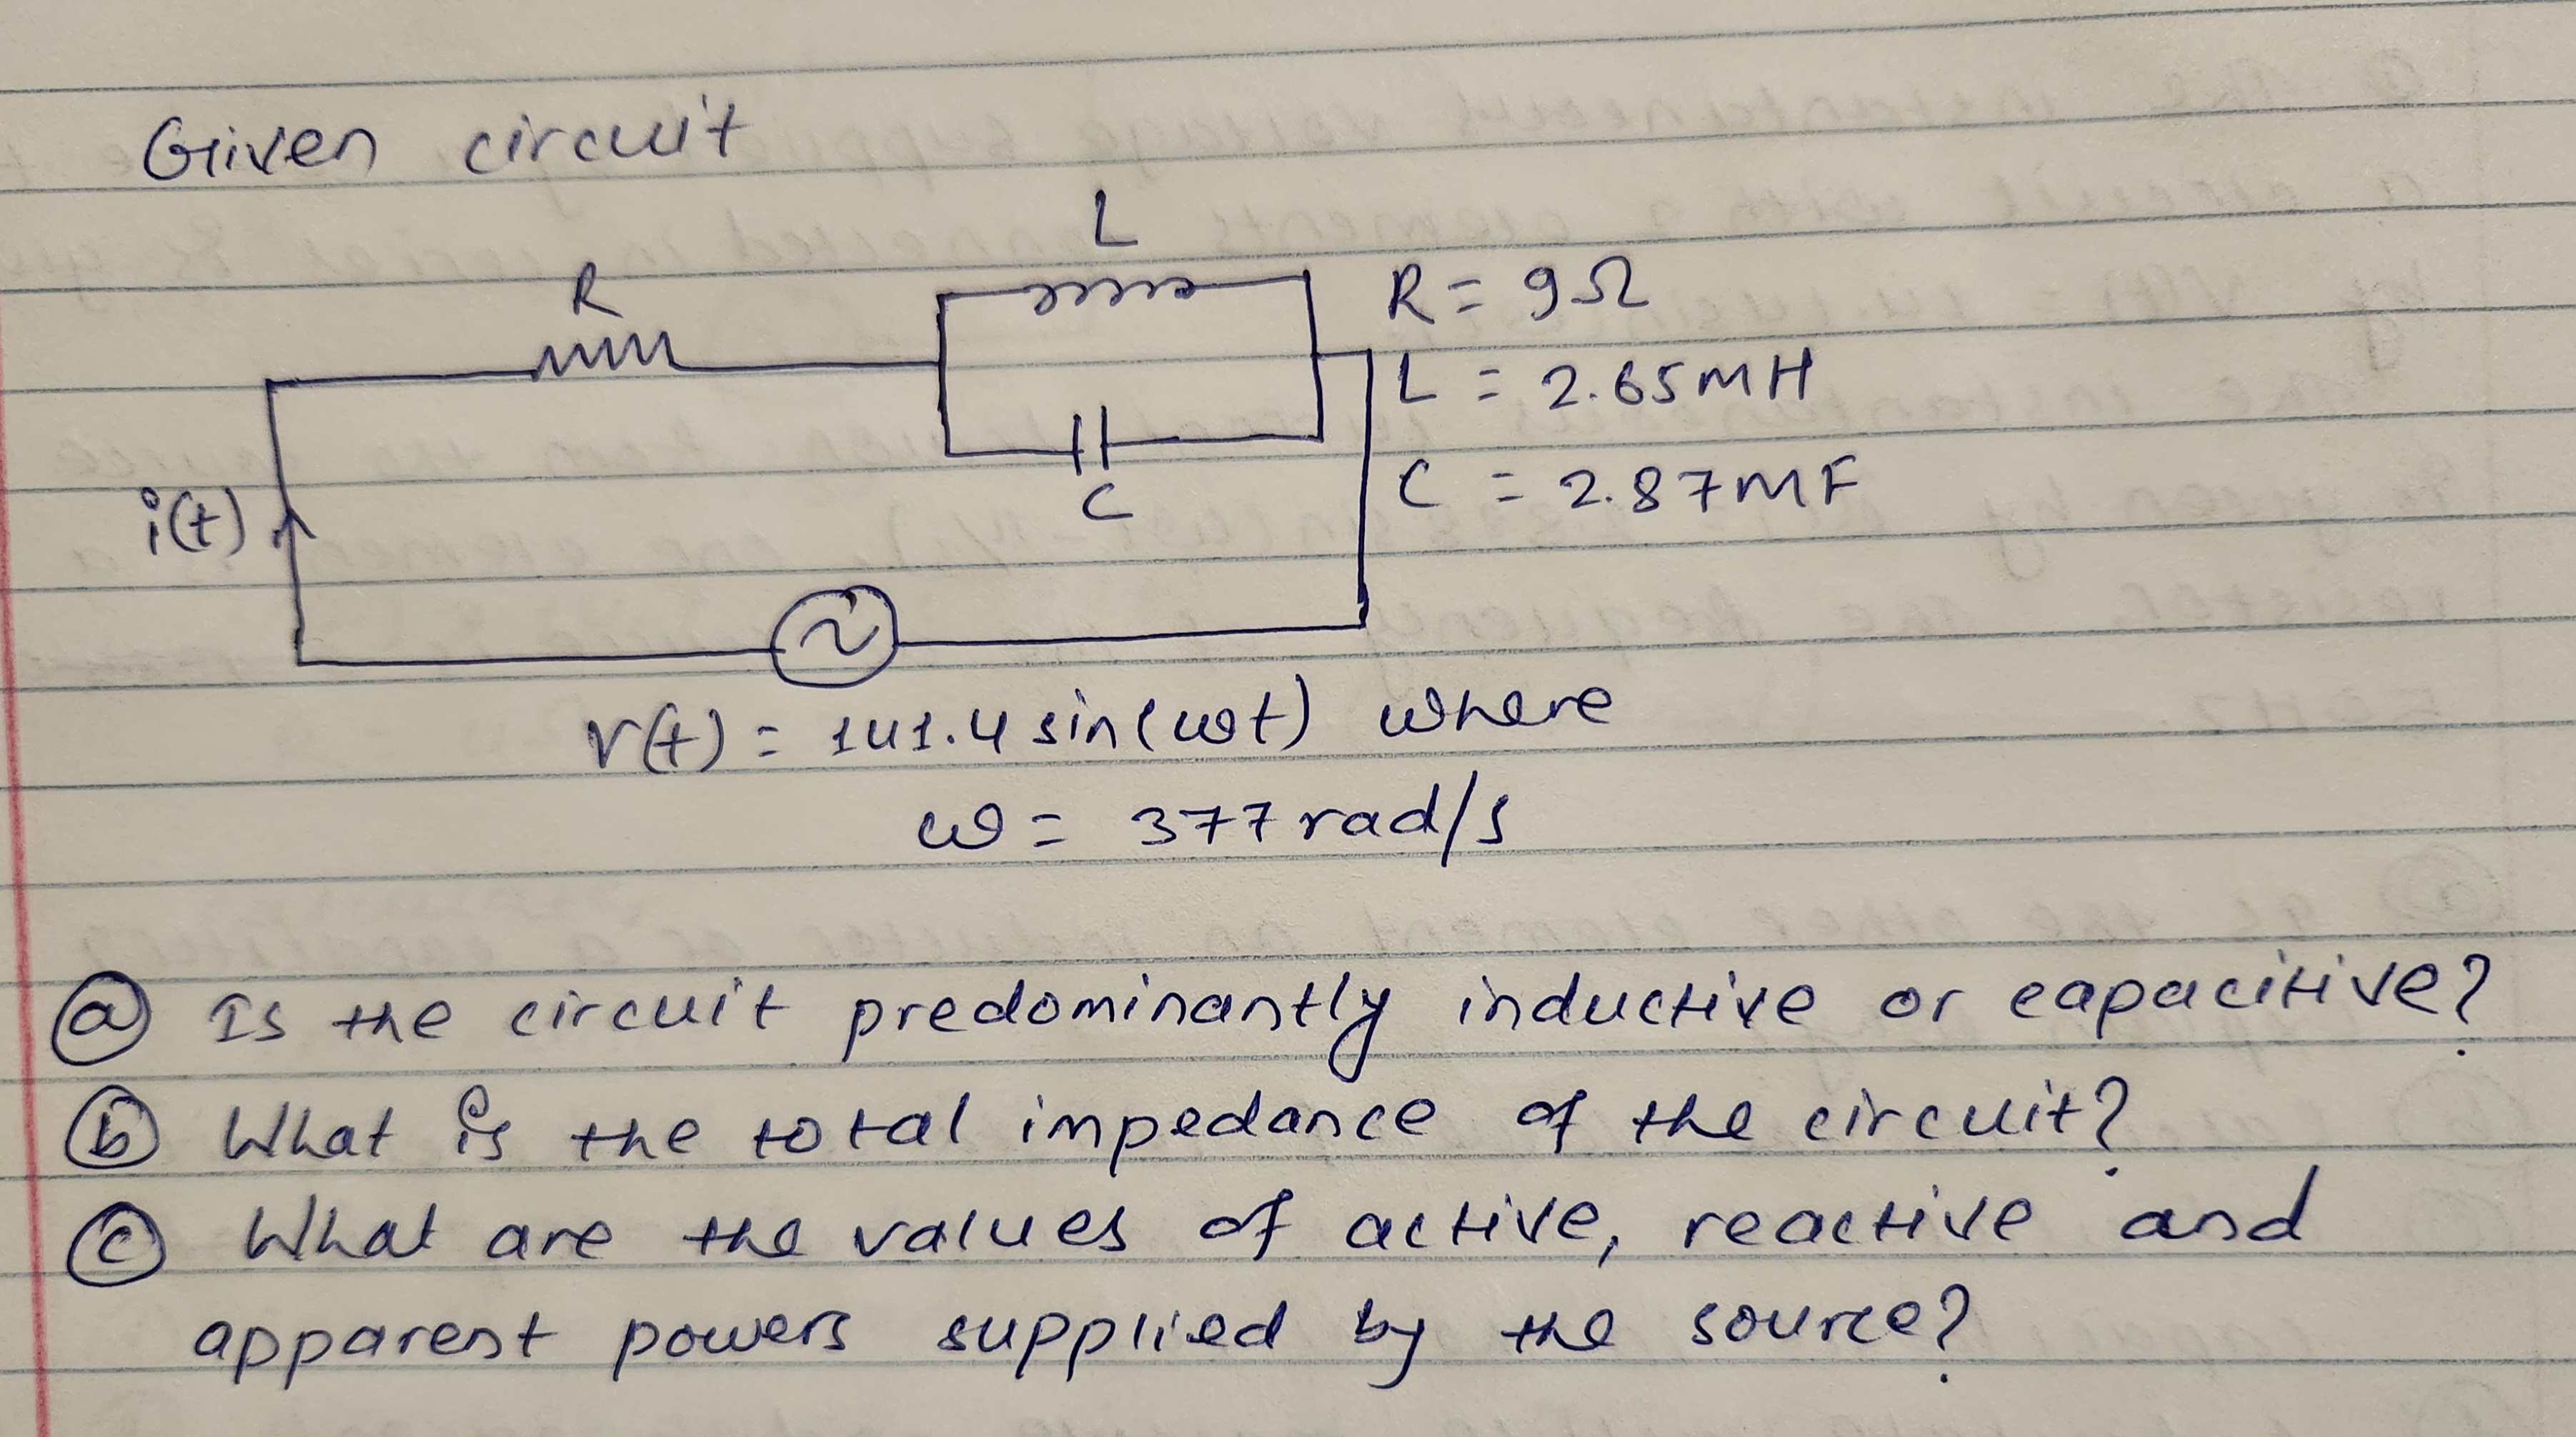 Given circuit
L
R
R = 9Ω
L = 2.65mH
C = 2.87mF
C
i(t)
v(t) = 141.4 sin(ωt) where
ω = 377 rad/s
ⓐ Is the circuit predominantly inductive or capacitive?
ⓑ What is the total impedance of the circuit?
ⓒ What are the values of active, reactive and
apparent powers supplied by the source?